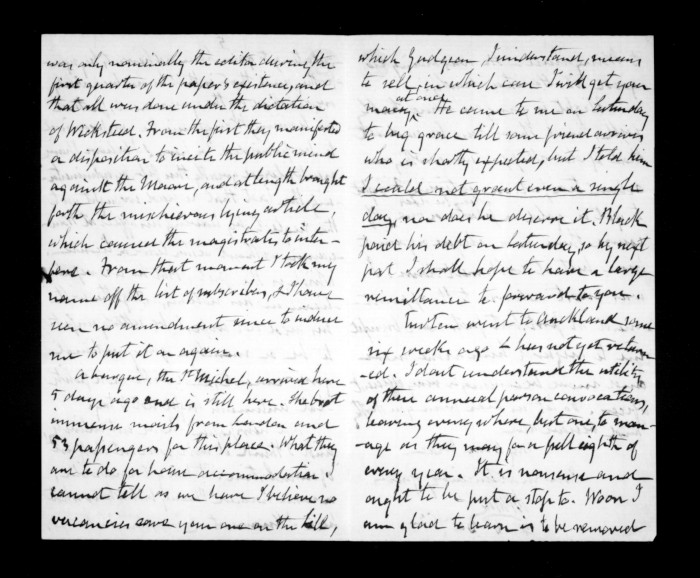 was only nominally the editor during the
first quarter of the paper's existence, and
that all was done under the dictation
of Wicksteed. From the first they manifested
a disposition to incite the public mind
against the Maori, and at length brought
forth the mischievous lying article,
which caused the magistrates to inter-
fere. From that moment I took my
name off the list of subscribers, & I have
seen no amendment since to induce
me to put it on again.
A barque, the St Michel, arrived here
5 days ago and is still here. She brot
immense mails from London and
53 passengers for this place. What they
are to do for house accommodation I
cannot tell as we have I believe no
vacancies save your one on the hill,
which Gudgeon, I understand, means
to sell, in which case I will get your
money at once. He came to me on Saturday
to beg grace till some friend arrives
who is shortly expected, but I told him
I could not grant even a single
day, nor does he deserve it. Black
paid his debt on Saturday, so by next
post I shall hope to have a large
remittance to forward to you.
Turton went to Auckland some
six weeks ago & has not yet return-
-ed. I don't understand the utility
of these annual person convocations,
leaving every where, but one, to man-
-age as they may for a full eighth of
every year. It is nonsense and
ought to be put a stop to. Woon I
am glad to learn is to be removed